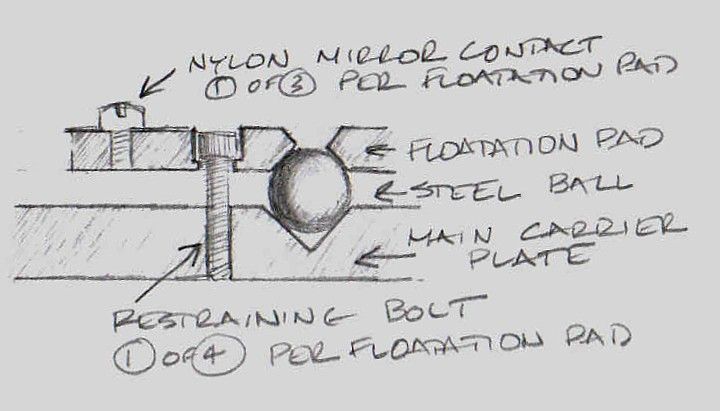 NYLON MIRROR CONTACT
① OF ③ PER FLOATATION PAD
FLOATATION PAD
STEEL BALL
MAIN CARRIER
PLATE
RESTRAINING BOLT
① OF ④ PER FLOATATION PAD